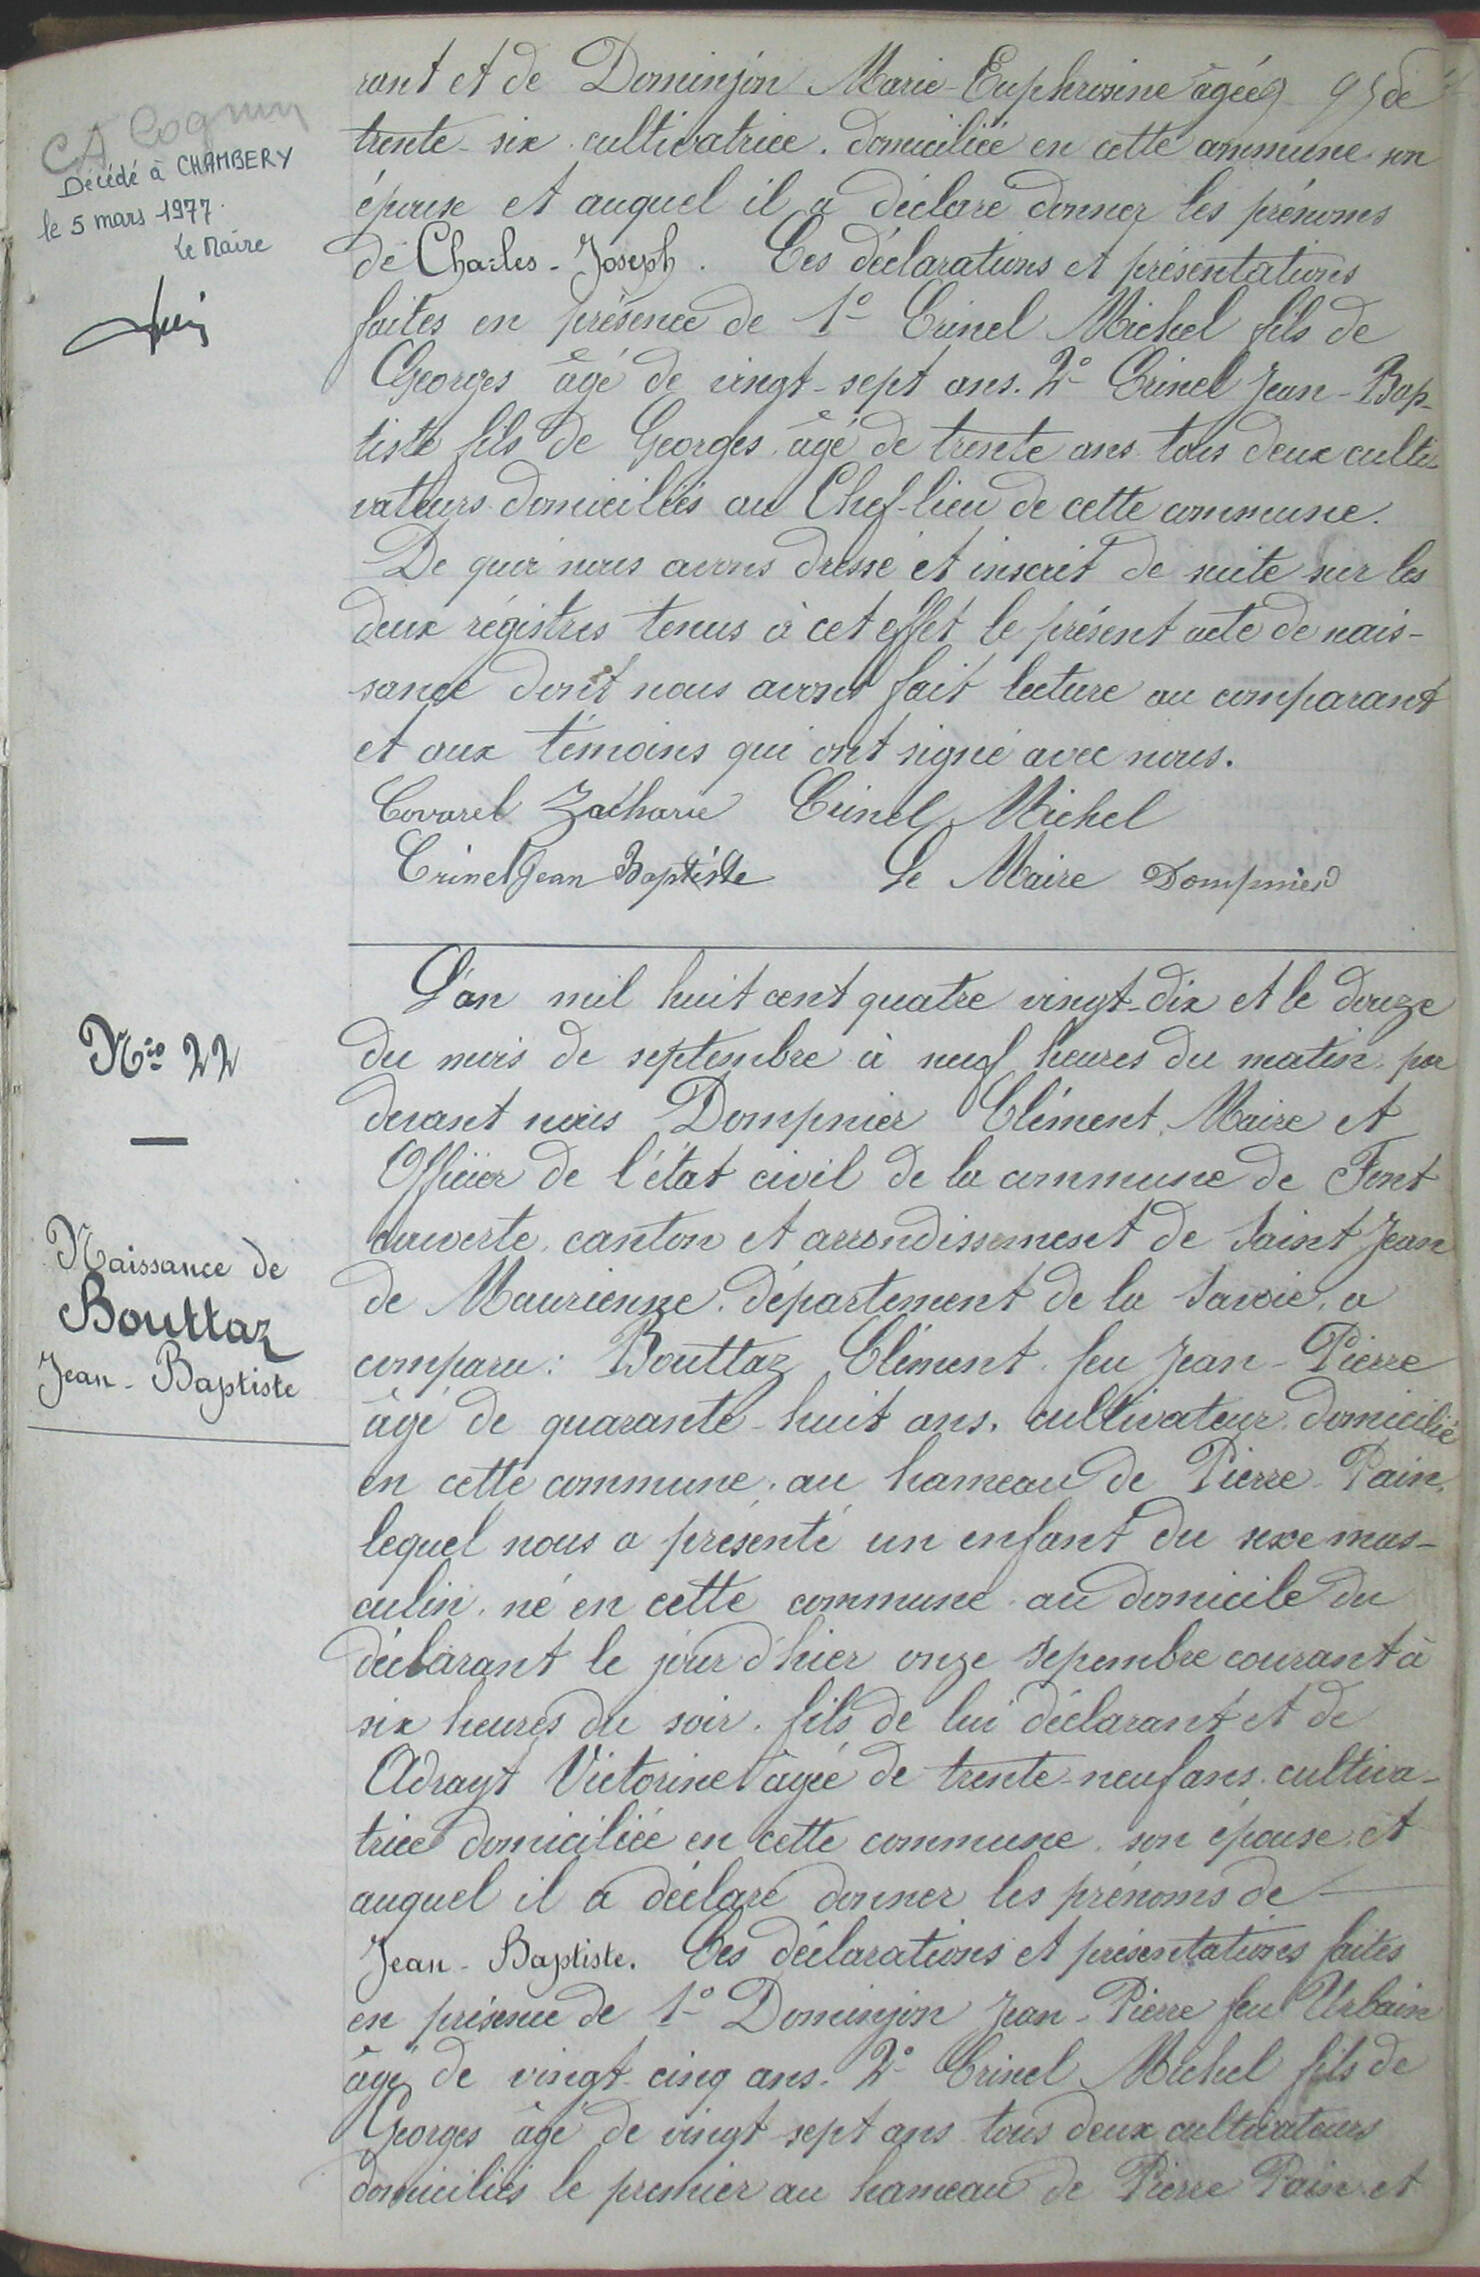 CA Cognin
Décédé à CHAMBERY
le 5 mars 1977.
Le Maire
rant et de Dominjon Marie-Euphrosine âgée de
trente-six cultivatrice domiciliée en cette commune son
épouse et auquel il a déclaré donner les prénoms
de Charles-Joseph. Ces déclarations et présentations
faites en présence de 1° Crinel Michel fils de
Georges âgé de vingt-sept ans. 2° Crinel Jean-Bap-
tiste fils de Georges âgé de trente ans tous deux culti-
vateurs domiciliés au Chef-lieu de cette commune.
De quoi nous avons dressé et inscrit de suite sur les
deux régistres tenus à cet effet le présent acte de nais-
sance dont nous avons fait lecture au comparant
et aux témoins qui ont signé avec nous.
Covarel Zacharie Crinel Michel
Crinel Jean Baptiste Le Maire Dompnier
Nio 22
Naissance de
Bouttaz
Jean-Baptiste
L'an mil huit cent quatre vingt-dix et le douze
du mois de septembre à neuf heures du matin, par
devant nous Dompnier Clément, Maire et
Officier de l'état civil de la commune de Font
couverte, canton et arrondissement de Saint Jean
de Maurienne, département de la Savoie, a
comparu: Bouttaz Clément feu Jean-Pierre
âgé de quarante-huit ans, cultivateur domicilié
en cette commune, au hameau de Pierre-Pain,
lequel nous a présenté un enfant du sexe mas-
culin, né en cette commune au domicile du
déclarant le jour d'hier onze sepembre courant à
six heures du soir, fils de lui déclarant et de
Adrayt Victorine âgée de trente-neuf ans, cultiva-
trice domiciliée en cette commune, son épouse, et
auquel il a déclaré donner les prénoms de
Jean-Baptiste. Ces déclarations et présentations faites
en présence de 1° Dominjon Jean-Pierre feu Urbain
âgé de vingt-cinq ans. 2° Crinel Michel fils de
Georges âgé de vingt sept ans tous deux cultivateurs
domiciliés le premier au hameau de Pierre Pain et